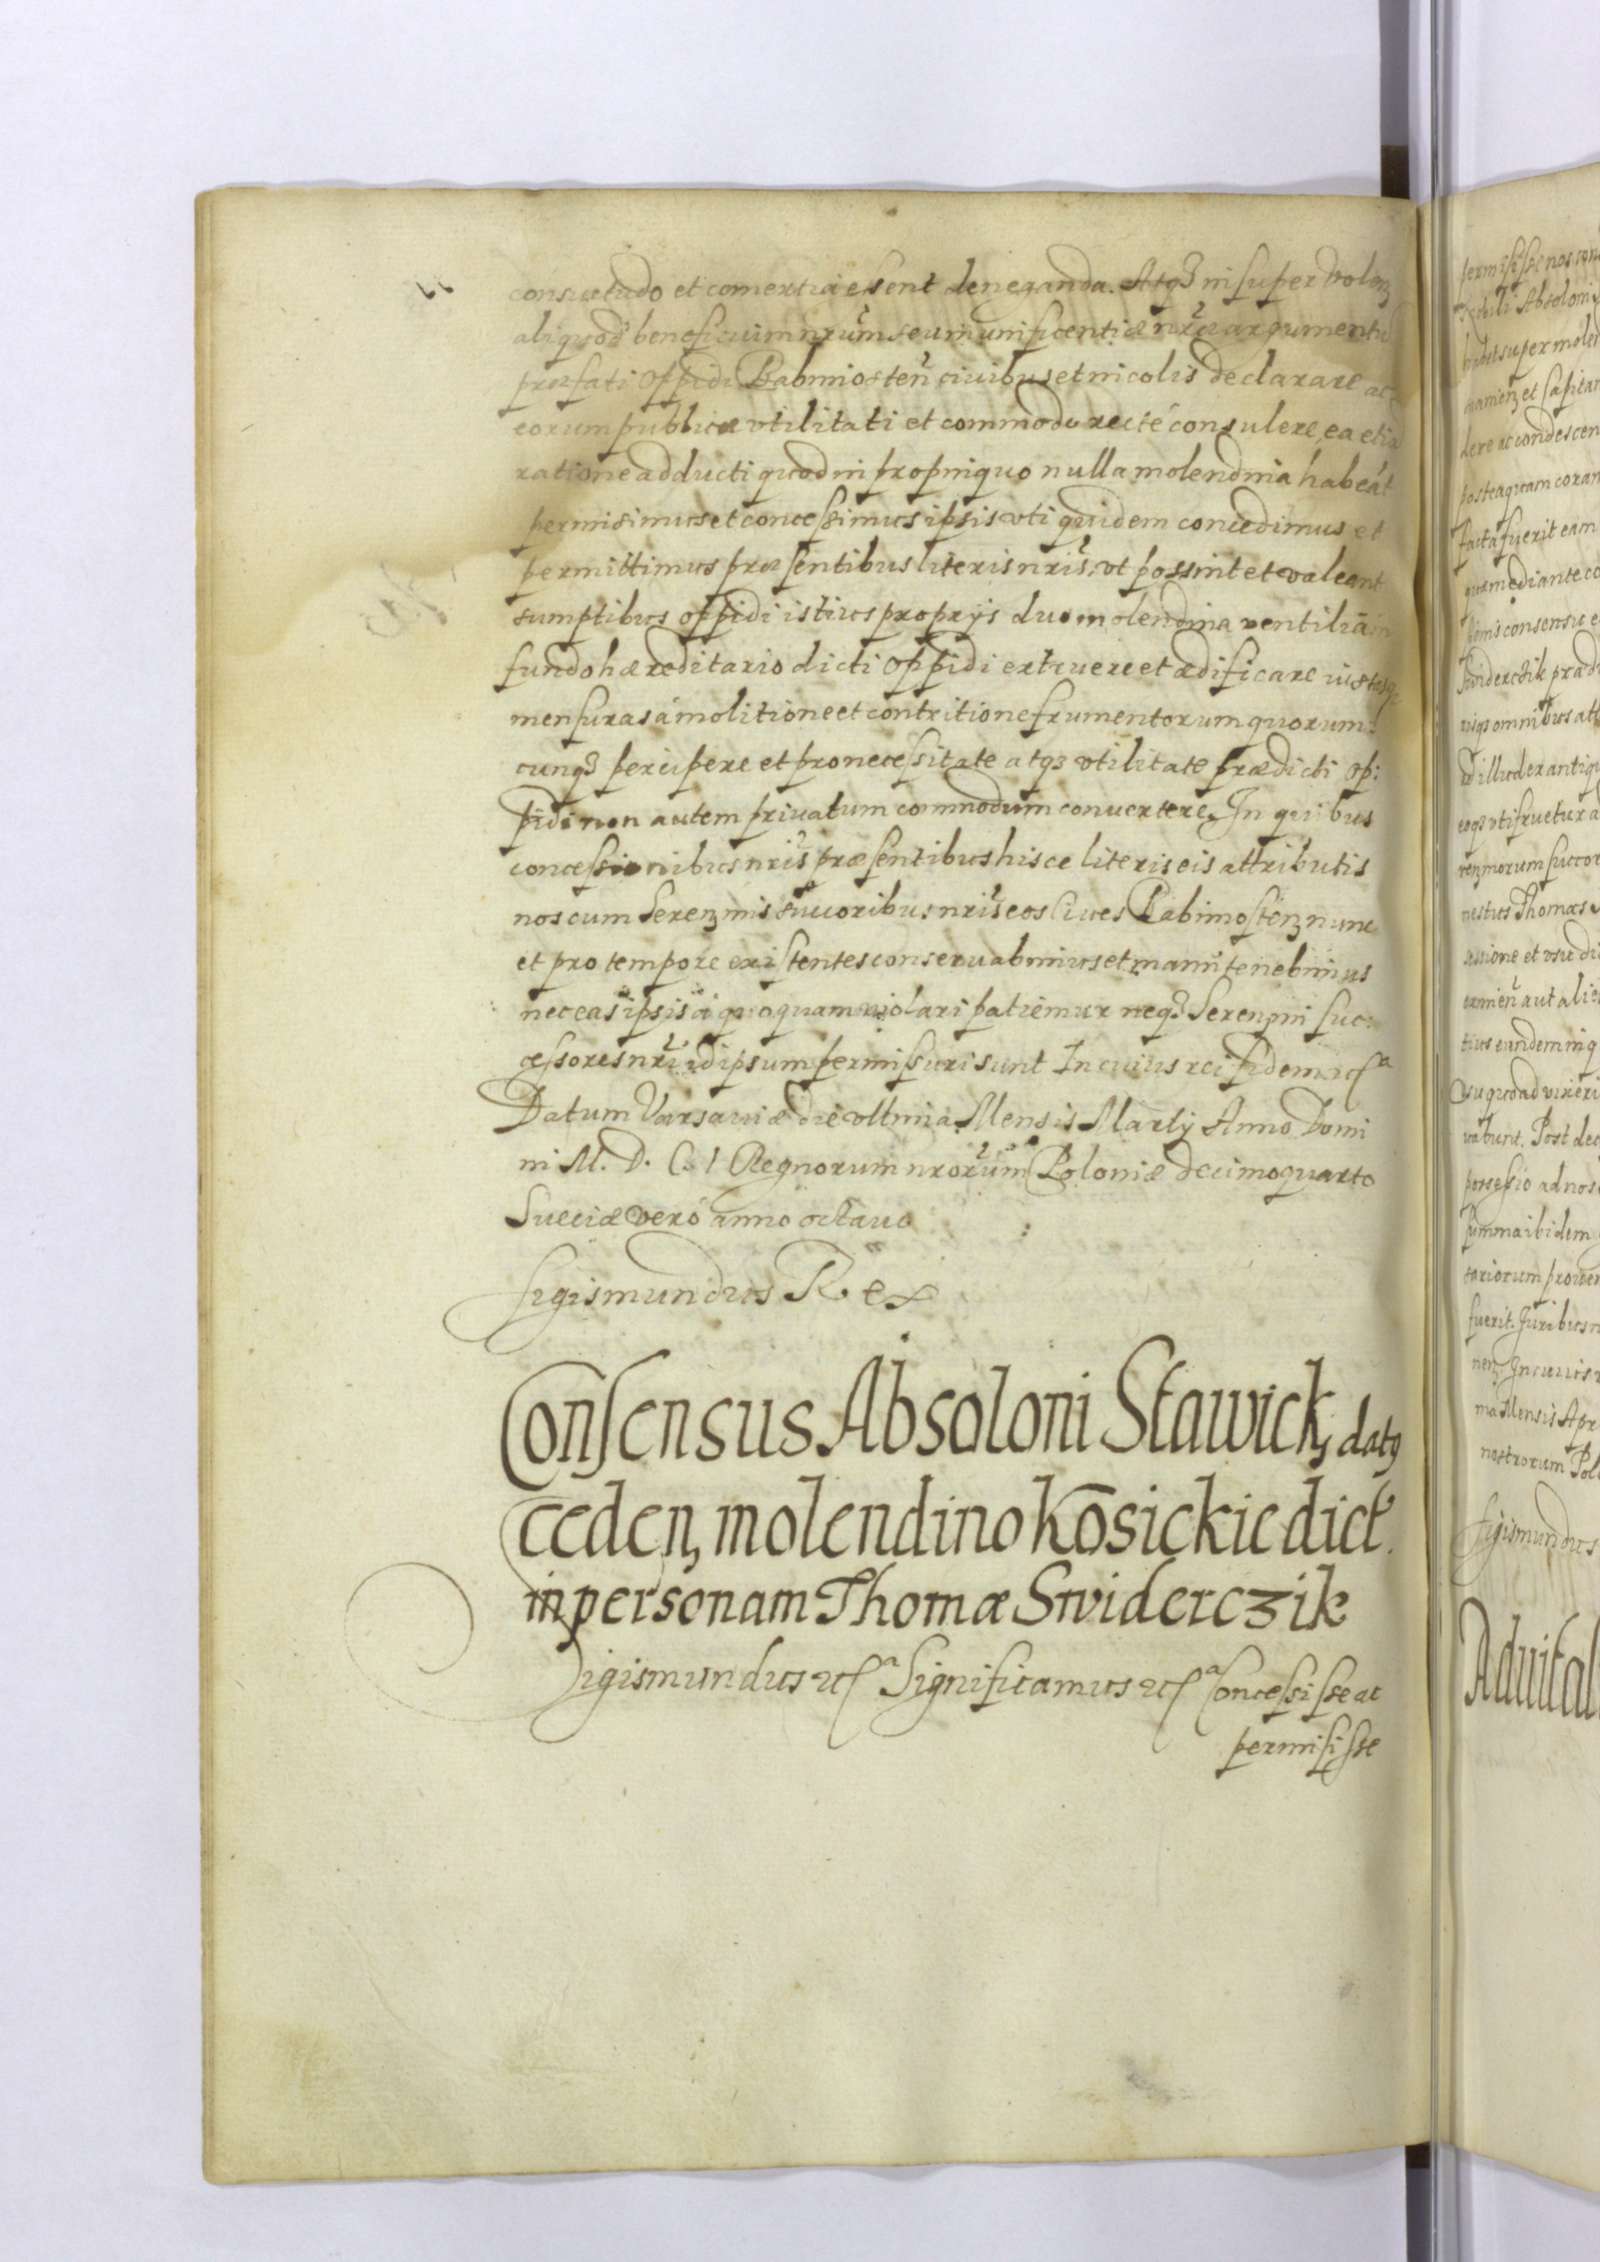 consuetudo et comertia essent deneganda. Atq3 insuper volen3
aliquod beneficium nrũm seu munificentiæ nrẽæ argumentũ
præfati Oppidi Babimosteñ civibus et incolis declarare ac
eorum publicæ vtilitati et commodo recté consulere, ea etiã
ratione adducti quod in propinquo nulla molendina habeãt
permisimus et concessimus ipsis vti quidem concedimus et
permittimus præsentibus literis nris̃, vt possint et valeant
sumptibus oppidi istius proprijs duo molendina ventilia in
fundo hæreditario dicti Oppidi extruere et ædificare iustasq3
mensuras á molitione et contritione frumentorum quorum:
cunq3 percipere et pro necessitate atq3 vtilitate prædicti Op:
pidi non autem priuatum commodum conuertere. In quibus
concessionibus nris̃ præsentibus hisce literis eis attributis
nos cum Seren3mis succoribus nris̃ eos Ciues Babimosten3 nunc
et pro tempore existentes conseruabimus et manũtenebimus
nec eas ipsis á quoquam violari patiemur neq3 Seren3mi suc:
cessores nrĩ id ipsum permissuri sunt In cuius rei fidem etcᵃ
Datum Varsauiæ die vltima Mensis Martij Anno Domi
ni M. D. C. I Regnorum nrorũm Poloniæ decimoquarto
Sueciæ veró anno octauo
Sigismundus Rex
Consensus Absoloni Stawicky datq
ceden, molendino Kosickie dict.
in personam Thomæ Swiderczik
Sigismundus etcᵃ Significamus etcᵃ Concessisse ac
permisisse
permisisse nos
Absoloni
super
et Capitan
dere ac condescen
posteaquam coram
facta fuerit eam
mediante co
consensu e
Swiderczik præd
omnibus att
illud ex antiqu
vtifruetur a
succo
Thomas
sessione et vsu di
aut ali
eundem in q
su quoad vixeri
vabunt. Post dec
possessio ad nos
summa ibidem
prouen
fuerit. Juribus n
In cuius r
ma Mensis Apr
nostrorum Pol
Sigismundus
Aduital